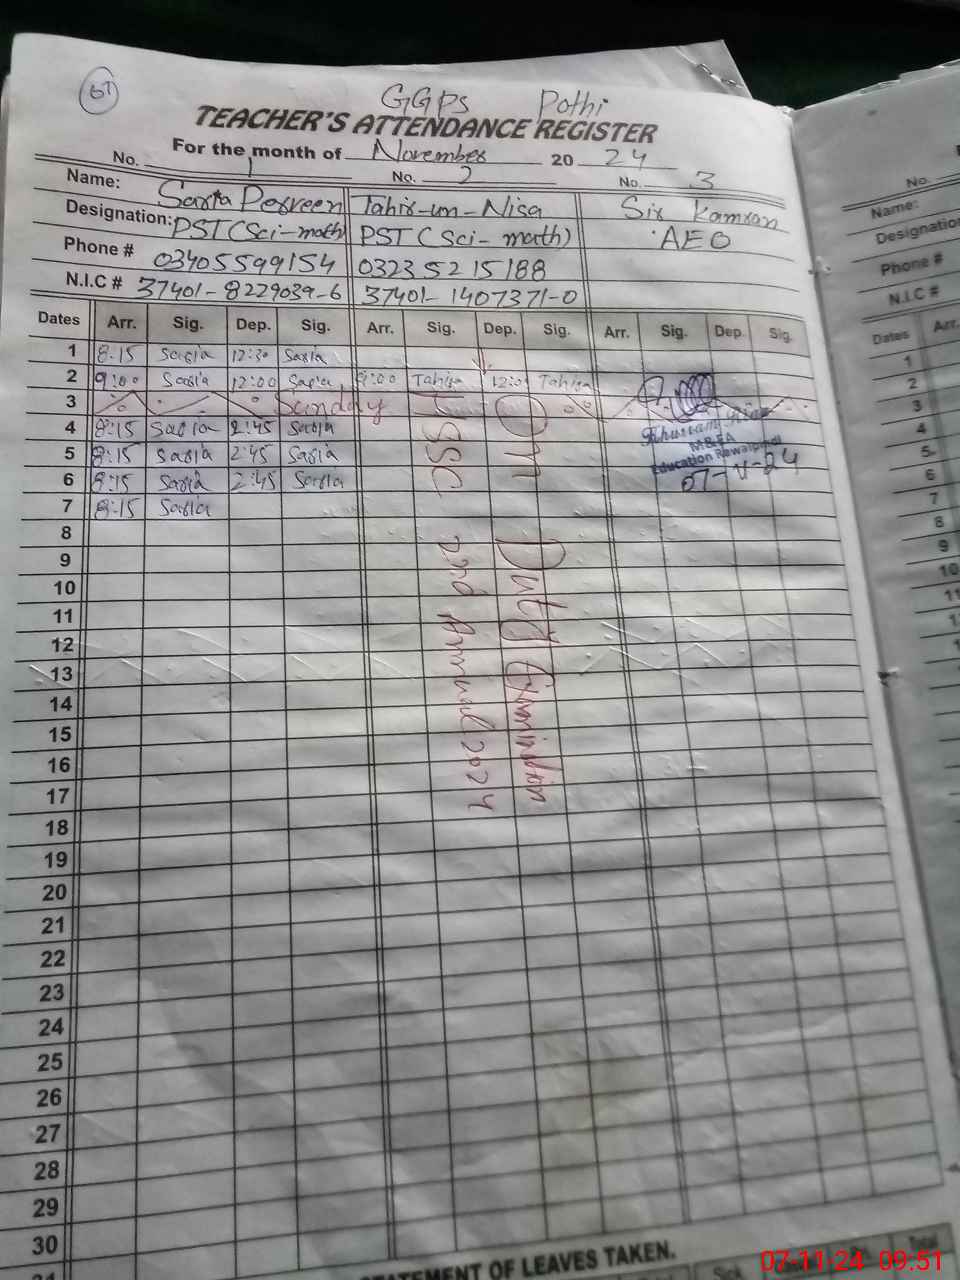 57
GGPS Pothi
TEACHER'S ATTENDANCE REGISTER
For the month of November 20 24
No. 1 No. 2 No. 3
Name: Saria Perveen Tahir-un-Nisa Sir Kamran
Designation: PST (Sci-math) PST (Sci-math) AEO
Phone # 03405599154 0323 52 15188
N.I.C # 37401-8229039-6 37401-1407371-0
Dates Arr. Sig. Dep. Sig. Arr. Sig. Dep. Sig. Arr. Sig. Dep. Sig.
1 8:15 Saria 12:30 Saria
2 9:00 Saria 12:00 Saria 9:00 Tahira 12:0 Tahira
3 Sunday
4 8:15 Saria 2:45 Saria
5 8:15 Saria 2:45 Saria
6 8:15 Saria 2:45 Saria
7 8:15 Saria
8
9
10
11
12
13
14
15
16
17
18
19
20
21
22
23
24
25
26
27
28
29
30
31
On Duty Examination
HSSC 2nd Annual 2024
Khurram
M&EA
Education Rawalpindi
07-11-24
STATEMENT OF LEAVES TAKEN.
Sick
Total
No.
Name:
Designatio
Phone #
N.I.C #
Dates Arr.
1
2
3
4
5
6
7
8
9
10
11
07-11-24 09:51